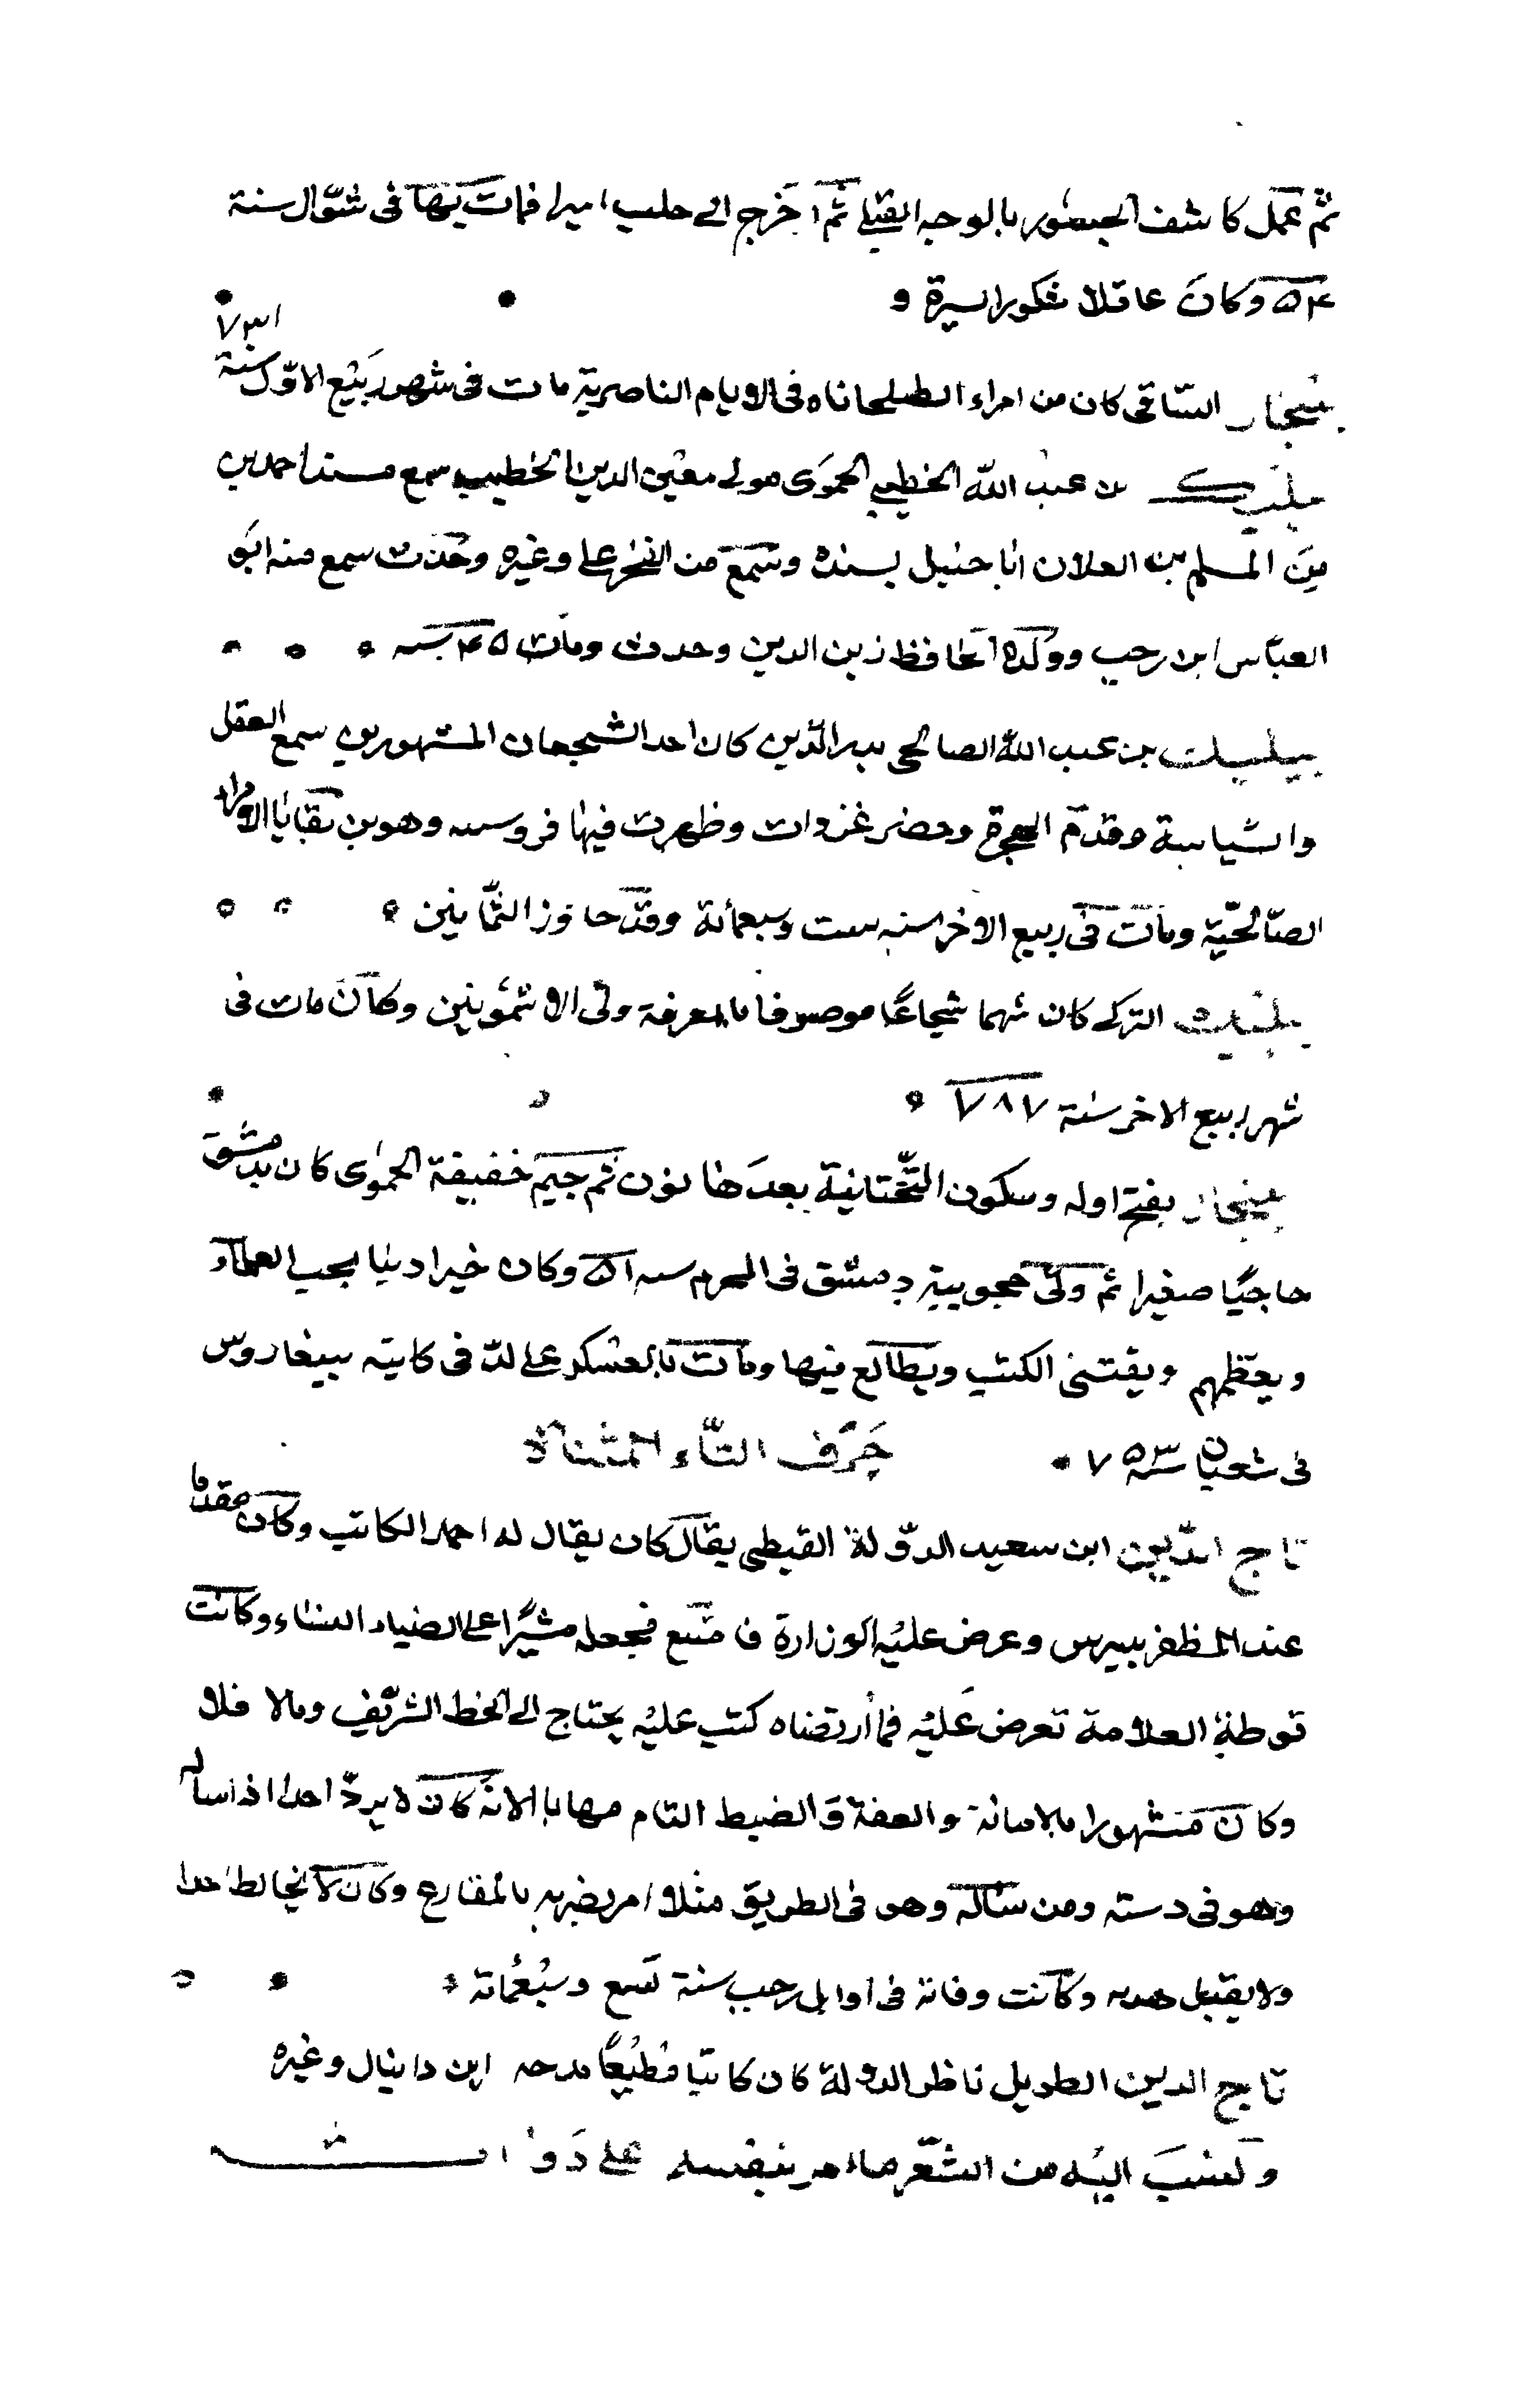 ثم عمل كاشف الجسور بالوجه القبلي ثم اخرج الى حلب اميرا فمات بها فى شوال سنة
۵۴ وكان عاقلا مشكور السيرة
بينجار الساقى كان من امراء الطبلخاناه فى الايام الناصرية مات فى شهر ربيع الاول سنة ٧٣١
بيليك بن عبد الله الخطيبى الحموى مولى معين الدين الخطيب سمع مسند احمد بن
من المسلم بن العلان انا حنبل بسنده وسمع من الفخر على وغيره وحدث سمع منه ابو
العباس ابن رجب وولده الحافظ زين الدين وحدث ومات سنة ۴۵
بيليك بن عبد الله الصالحى بدر الدين كان احد الشجعان المشهورين سمع العقل
والسياسة وقدم الهجرة وحضر غزوات وظهرت فيها فروسيه وهو من بقايا الامراء
الصالحية ومات فى ربيع الاخر سنه ست وسبعمائة وقد جاوز الثمانين
التركى كان شهما شجاعا موصوفا بالمعرفة ولى الاشمونين وكان مات فى
شهر ربيع الاخر سنة ٧٨٧
بينجار بفتح اوله وسكون التحتانية بعدها نون ثم جيم خفيفة الحموى كان بدمشق
حاجبا صغيرا ثم ولى حجوبية دمشق فى المحرم سنه ۵١ وكان خيرا دينا يحب العلماء
ويعظمهم ويقتنى الكتب ويطالع فيها ومات بالعسكر على لد فى كاينه بيبغاروس
فى شعبان سنه ٧۵٣ حرف التاء المثناة
تاج الدين ابن سعيد الدولة القبطى يقال كان يقال له احمد الكاتب وكان مقدما
عند المظفر بيبرس وعرض عليه الوزارة فامتنع فجعله مشيرا على الضياء النشاء وكانت
توطئة العلامة تعرض عليه فما ارتضاه كتب عليه يحتاج الى الخط الشريف ومالا فلا
وكان مشهورا بالامانة والعفة والضبط التام مهابا الا انه كان لا يرد احدا اذا ساله
وهو فى دسته ومن ساله وهو فى الطريق مثلا امر بضربه بالمقارع وكان لا يخالط احدا
ولا يقبل هديه وكانت وفاته فى اوايل رجب سنة تسع وسبعمائة
تاج الدين الطويل ناظر الدولة كان كاتبا مطيعا مدحه ابن دانيال وغيره
ولنسب اليه من الشعر ما امر بنفسه على